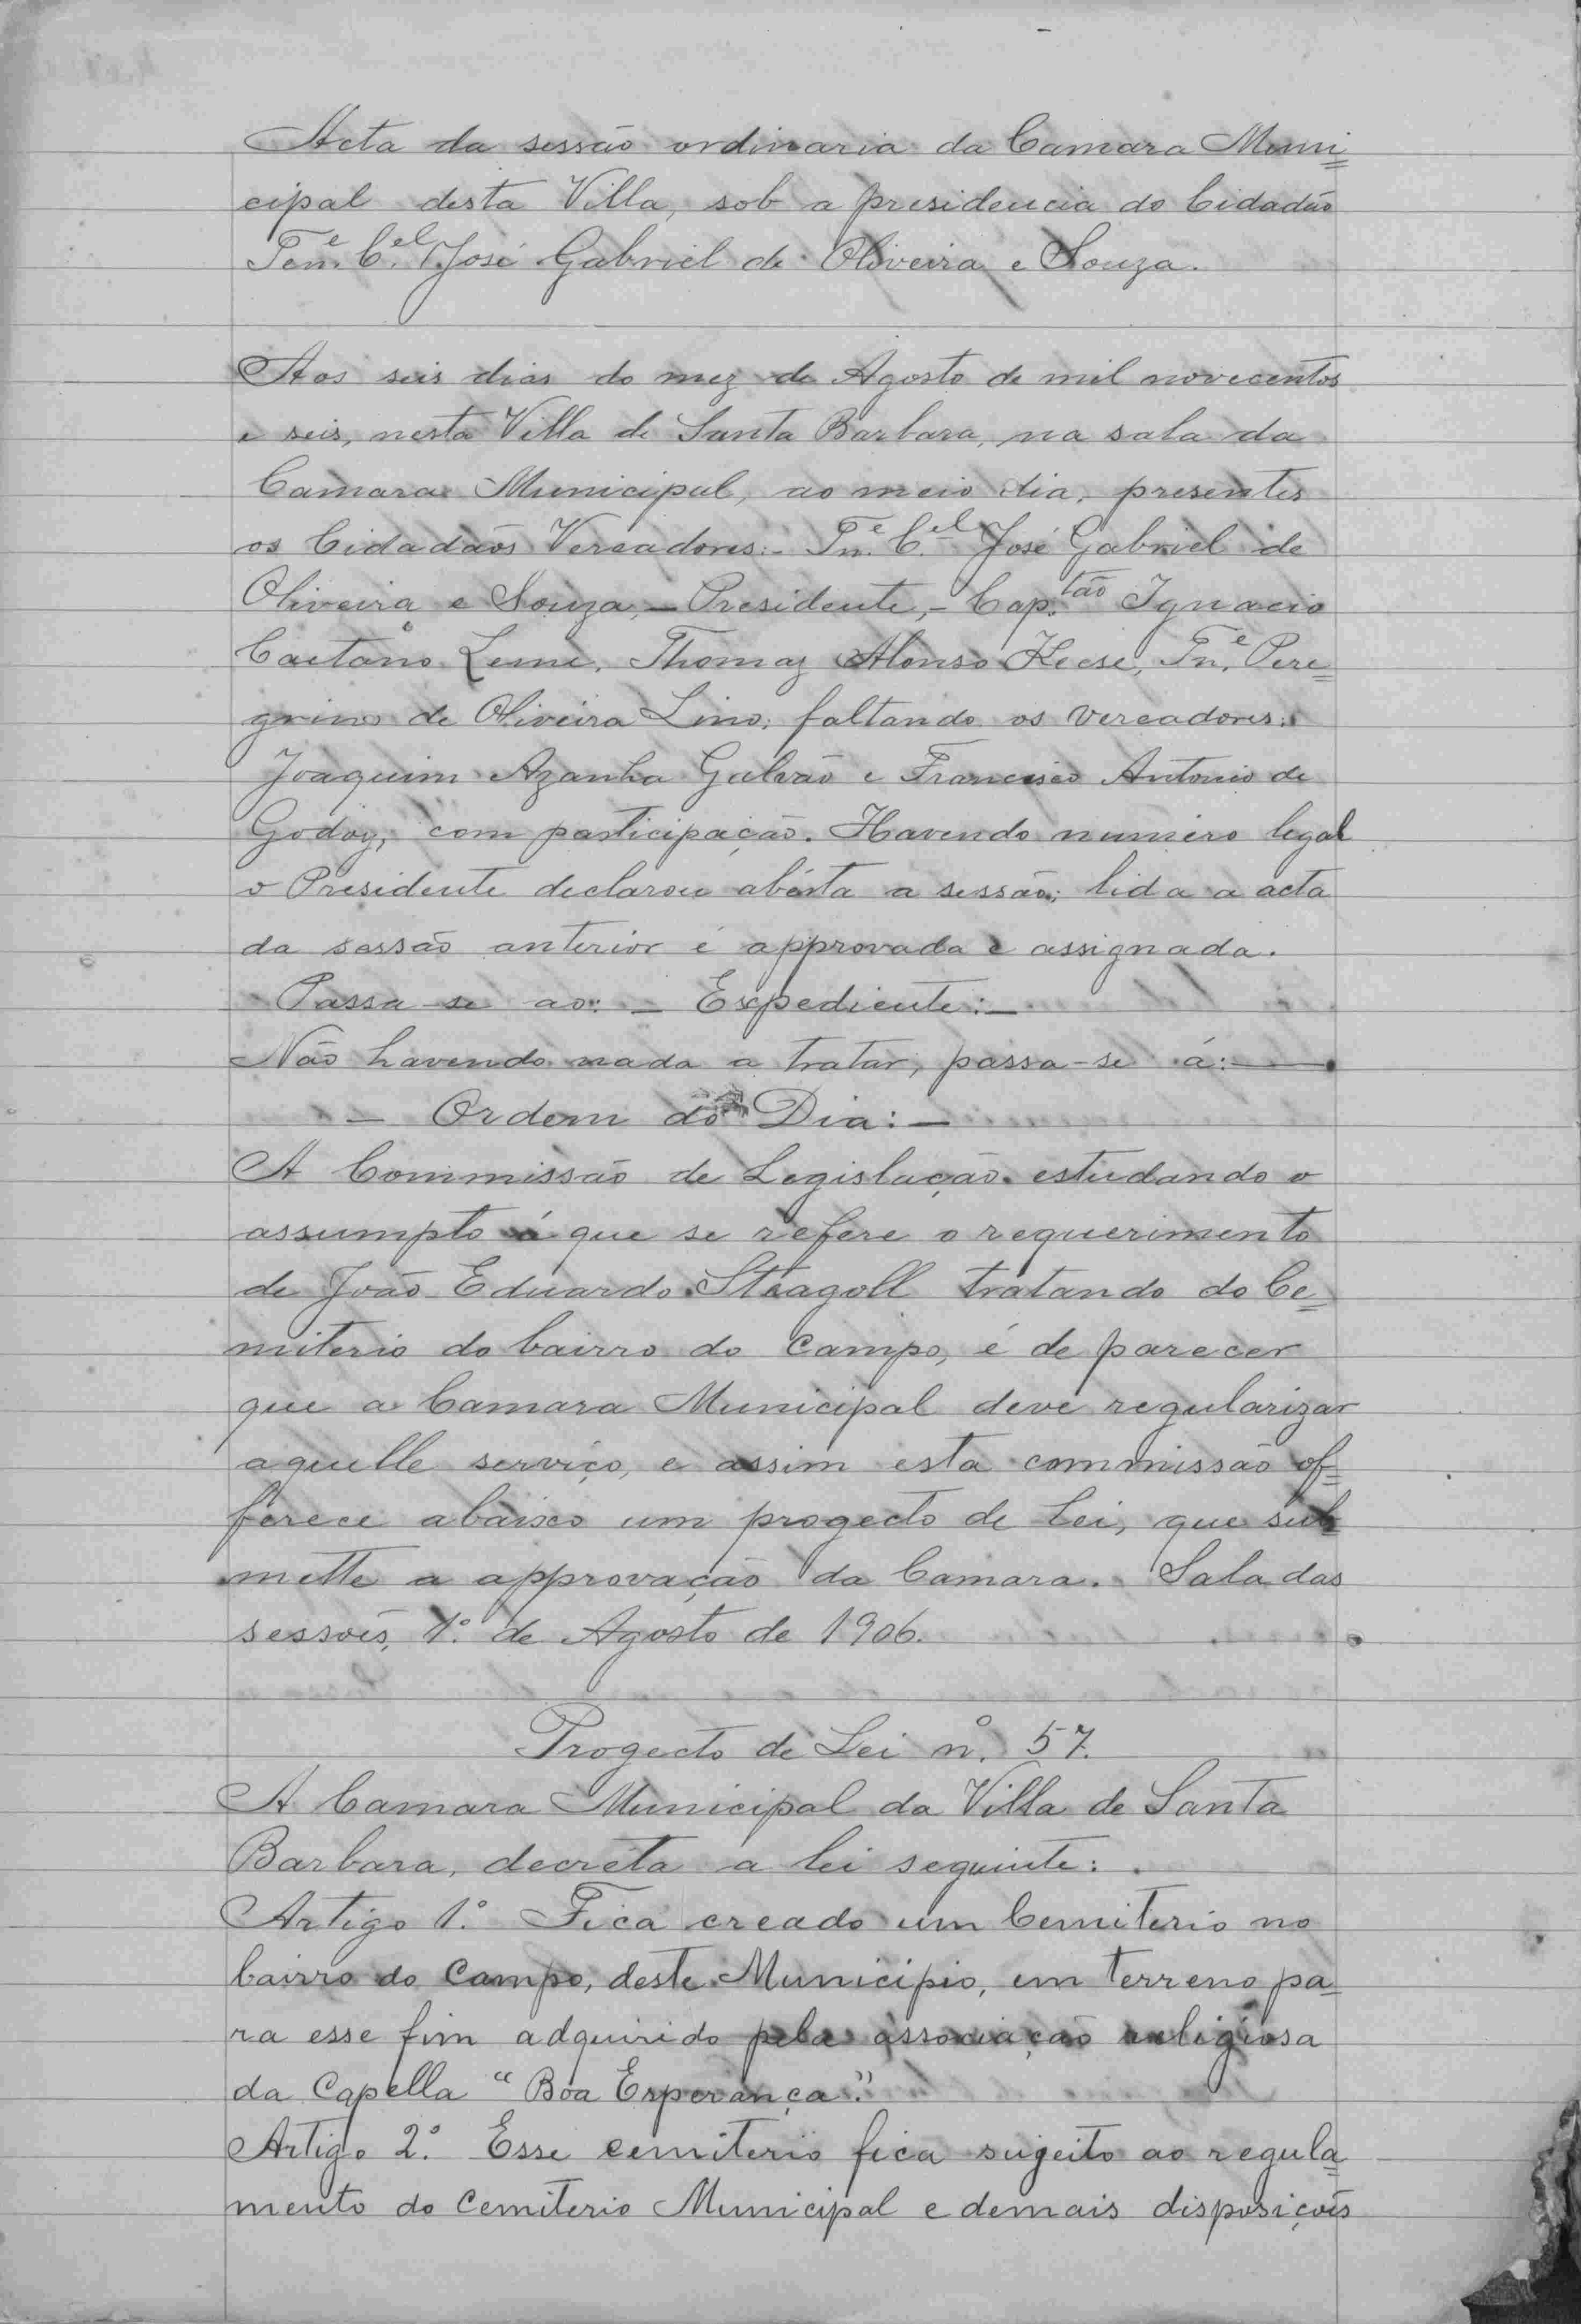 Acta da sessão ordinaria da Camara Muni=
cipal desta Villa, sob a presidencia do Cidadão
Ten.e C.el José Gabriel de Oliveira e Souza.
Aos seis dias do mez de Agosto de mil novecentos
e seis, nesta Villa de Santa Barbara, na sala da
Camara Municipal, ao meio dia, presentes
os Cidadãos Vereadores:- Tn.e C.el José Gabriel de
Oliveira e Souza,- Presidente,- Cap.tão Ignacio
Caetano Leme, Thomaz Alonso Keese, Tn.e Pere=
grino de Oliveira Lino; faltando os vereadores:
Joaquim Azanha Galvão e Francisco Antonio de
Godoy, com participação. Havendo numero legal
o Presidente declarou abérta a sessão; lida a acta
da sessão anterior é approvada e assignada.
Passa-se ao: - Expediente:-
Não havendo nada a tratar, passa-se á:-
- Ordem do Dia:-
A Commissão de Legislação estudando o
assumpto á que se refere o requerimento
de João Eduardo Steagoll tratando do Ce=
miterio do bairro do Campo, é de parecer
que a Camara Municipal deve regularizar
aquelle serviço, e assim esta commissão of=
ferece abaixo um progecto de Lei, que sub
mette a approvação da Camara. Sala das
sessoẽs, 1º de Agosto de 1906.
Progecto de Lei nº. 57.
A Camara Municipal da Villa de Santa
Barbara, decreta a lei seguinte:
Artigo 1º. Fica creado um Cemiterio no
bairro do Campo, deste Municipio, em terreno pa=
ra esse fim adquirido pela associação religiosa
da Capella "Boa Esperança".
Artigo 2º. Esse cemiterio fica sugeito ao regula=
mento do Cemiterio Municipal e demais disposiçoẽs